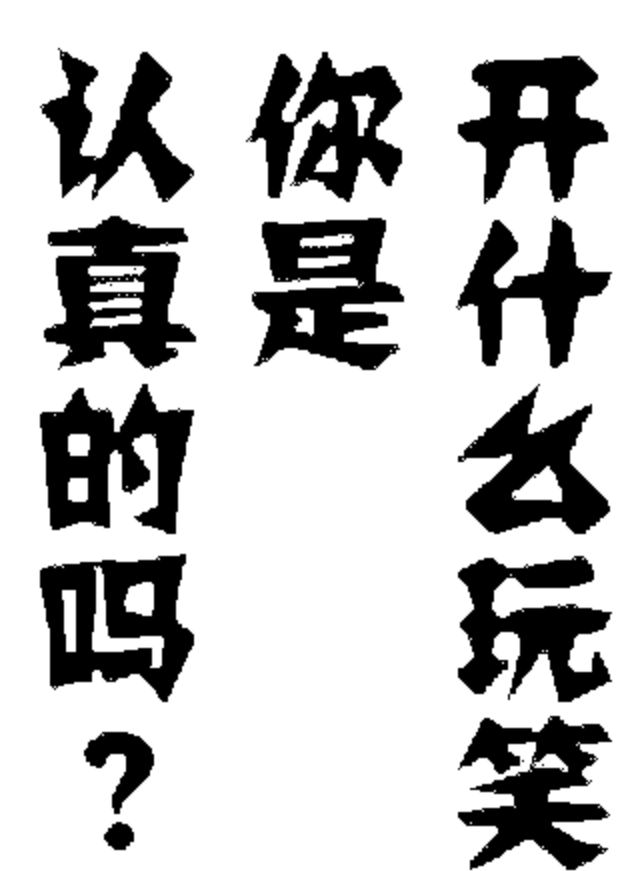 开什么玩笑
你是
认真的吗？